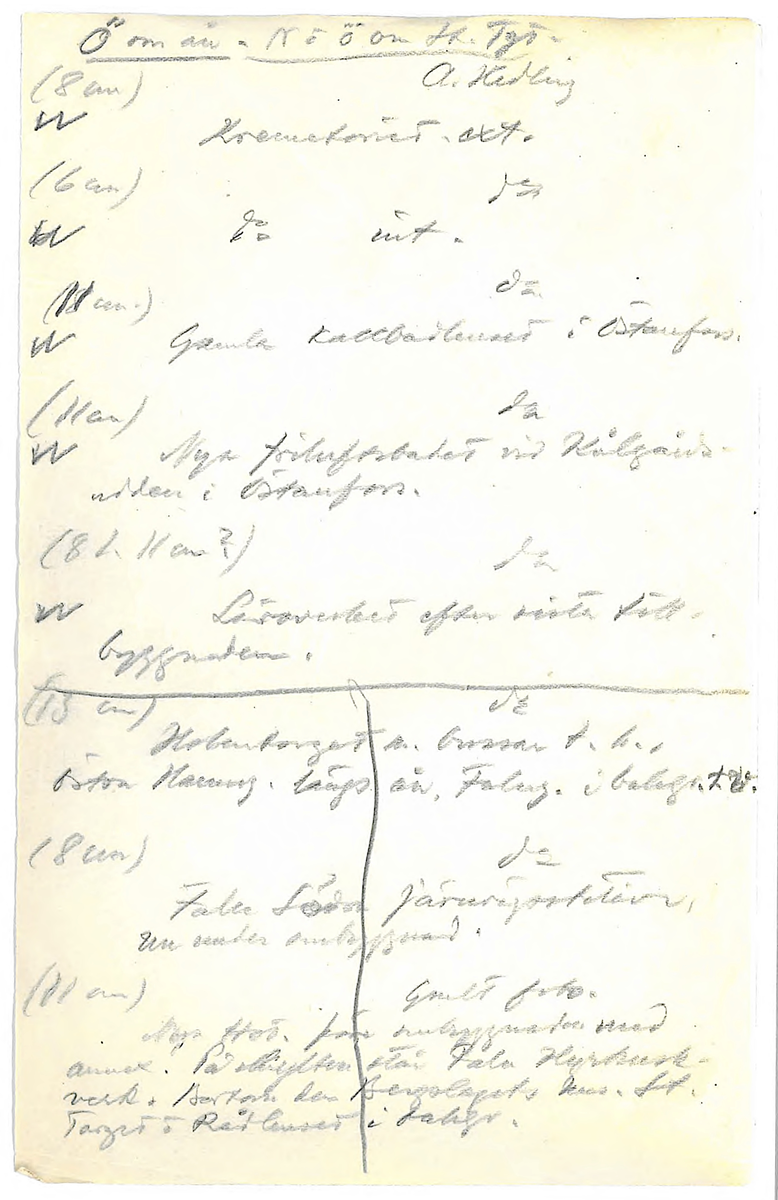 Ö om ån. N ö Ö om St. Tgt.
(8 cm) A. Hedling
W Krematoriet. ext.
(6 cm) d:o
W d:o int.
(11 cm.) d:o
W Gamla Kallbadhuset i Östanfors.
(11 cm) d:o
W Nya friluftsbadet vid Kålgårds-
udden i Östanfors.
(8 l. 11 cm?) d:o
W Läroverket efter sista till-
byggnaden.
(13 cm) d:o
Holmtorget m. bussar t. h.,
Östra Hamng. längs ån, Falug. i bakgr. t. v.
(8 cm) d:o
Falu Södra järnvägsstation,
nu under ombyggnad.
(11 cm) Gult foto.
Nya Hot. före ombyggnaden med
annex. På skylten står Falu Hyrkusk-
verk. Bortom den Bergslagets hus. St.
Torget o Rådhuset i bakgr.